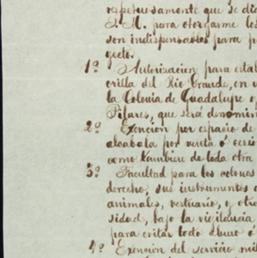 respetuosamente que se di
S. M. para otorgarme los
son indispensables para p
yecto.
1ª Autorizacion para estab
orilla del Rio Grande, en u
la Colonia de Guadalupe o
Pilares, que será denomin
2ª Exencion por espacio de
alcabala por venta ó
como tambien de toda otra
3ª Facultad para los colonos
derecho, sus instrumentos
animales, vestuario, y otr
sidad, bajo la vigilancia
para evitar todo abuso ó
4ª Exencion del servicio mil